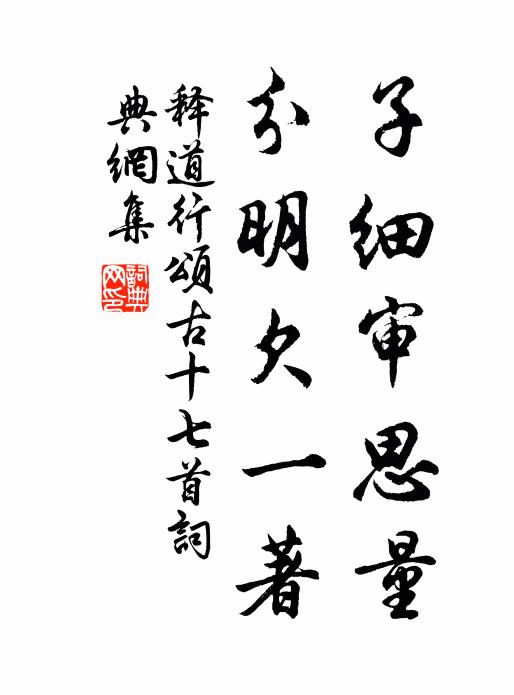 子细审思量
分明欠一著
释道行颂古十七首詞
典網集
詞典
网印